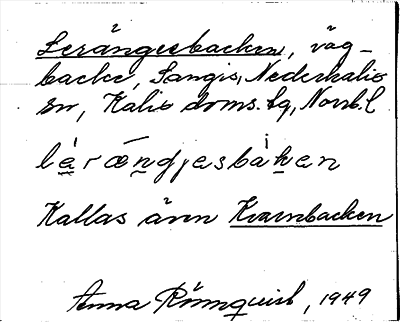 Lerängesbacken, väg-
backe, Sangis, Nederkalix
sn, Kalix doms.lg, Norrb.l
lèrǽndjesbàken
Kallas även Kvarnbacken
Anna Rönnquist, 1949